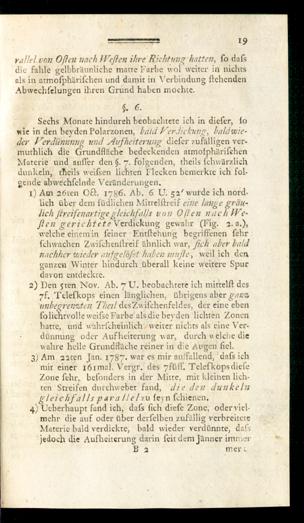 19
rallel von Osten nach Westen ihre Richtung hatten, so daß
die fahle gelbbräunliche matte Farbe wol weiter in nichts
als in atmosphärischen und damit in Verbindung stehenden
Abwechselungen ihren Grund haben mochte.
§. 6.
Sechs Monate hindurch beobachtete ich in dieser, so
wie in den beyden Polarzonen, bald Verdickung, bald wie-
der Verdünnung und Aufheiterung dieser zufälligen ver-
muthlich die Grundfläche bedeckenden atmosphärischen
Materie und ausser den §. 7. folgenden, theils schwärzlich
dunkeln, theils weissen lichten Flecken bemerkte ich fol-
gende abwechselnde Veränderungen.
1) Am 26ten Oct. 1786. Ab. 6 U. 52' wurde ich nord-
lich über dem südlichen Mittelstreif eine lange gräu-
lich streifenartige gleichfalls von Osten nach We-
sten gerichtete Verdickung gewahr (Fig. 2. a.),
welche einem in seiner Entstehung begriffenen sehr
schwachen Zwischenstreif ähnlich war, sich aber bald
nachher wieder aufgelöset haben mußte, weil ich den
ganzen Winter hindurch überall keine weitere Spur
davon entdeckte.
2) Den 5ten Nov. Ab. 7 U. beobachtete ich mittelst des
7f. Teleskops einen länglichen, übrigens aber ganz
unbegrenzten Theil des Zwischenfeldes, der eine eben
so lichtvolle weisse Farbe als die beyden lichten Zonen
hatte, und wahrscheinlich weiter nichts als eine Ver-
dünnung oder Aufheiterung war, durch welche die
wahre helle Grundfläche reiner in die Augen fiel.
3) Am 22ten Jan. 1787. war es mir auffallend, daß ich
mit einer 161mal. Vergr. des 7füß. Teleskops diese
Zone sehr, besonders in der Mitte, mit kleinen lich-
ten Streifen durchwebet fand, die den dunkeln
gleichfalls parallel zu seyn schienen.
4) Ueberhaupt fand ich, daß sich diese Zone, oder viel-
mehr die auf oder über derselben zufällig verbreitete
Materie bald verdickte, bald wieder verdünnte, daß
jedoch die Aufheiterung darin seit dem Jänner immer
B 2